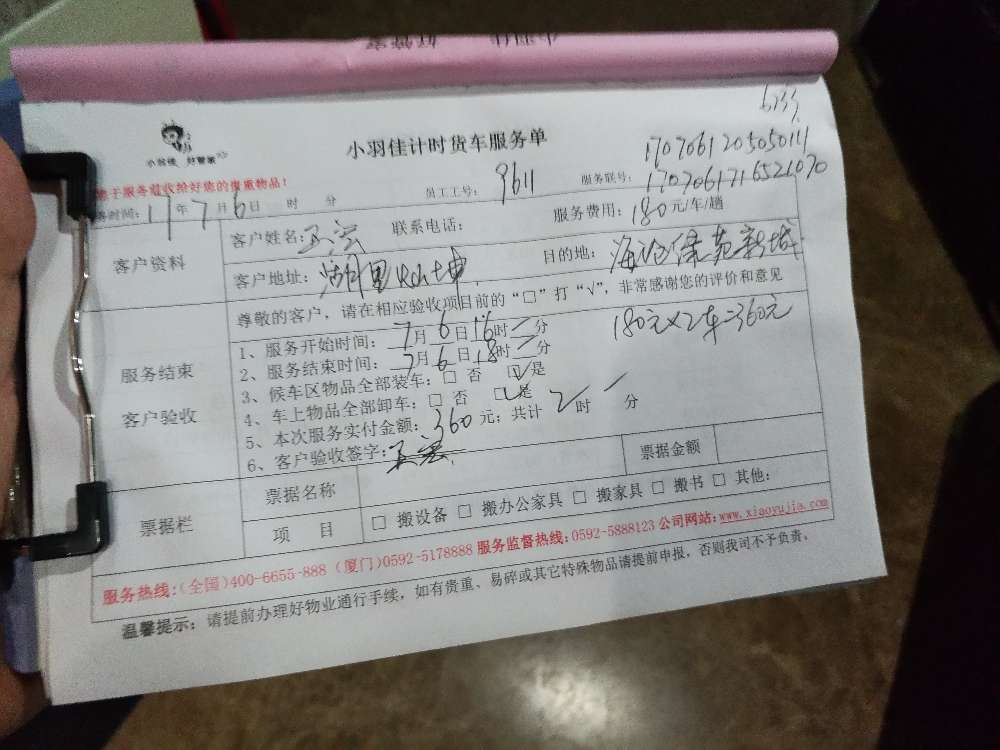 小羽佳 好管家
小羽佳计时货车服务单
于服务前收拾好您的贵重物品！
务时间：17年7月6日 时 分 员工工号：9611 服务联号：1707061205050111
1707061716521070
客户资料
客户姓名：王宏 联系电话： 服务费用：180元/车/趟
客户地址：湖里 目的地：海沧绿苑新城
服务结束
客户验收
尊敬的客户，请在相应验收项目前的“□”打“√”，非常感谢您的评价和意见
1、服务开始时间：7月6日16时一分 180元×2车=360元
2、服务结束时间：7月6日18时一分
3、候车区物品全部装车：□ 否 ☑是
4、车上物品全部卸车：□ 否 ☑是
5、本次服务实付金额：360元；共计2时一分
6、客户验收签字：王宏
票据栏
票据名称 票据金额
项 目 □ 搬设备 □ 搬办公家具 □ 搬家具 □ 搬书 □ 其他：
服务热线：（全国）400-6655-888（厦门）0592-5178888 服务监督热线：0592-5888123 公司网站：www.xiaoyujia.com
温馨提示：请提前办理好物业通行手续，如有贵重、易碎或其它特殊物品请提前申报，否则我司不予负责。